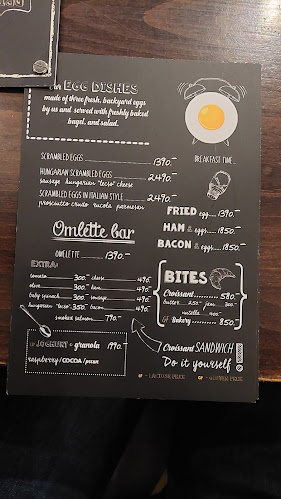 EGG DISHES
made of three fresh, backyard eggs
by us and served with freshly baked
bagel, and salad.
SCRAMBLED EGGS 1390.-
HUNGARIAN SCRAMBLED EGGS 2490.-
sausage hungarian "tecso" cheese
SCRAMBLED EGGS IN ITALIAN STYLE 2490.-
prosciutto crudo rucola parmesan
BREAKFAST TIME
FRIED eggs 1390.-
HAM & eggs 1850.-
BACON & eggs 1850.-
Omlette bar
OMELETTE 1390.-
EXTRA:
tomato 300.- cheese 490.-
olive 300.- ham 490.-
baby spinach 300.- sausage 490.-
hungarian "tecso" 350.- bacon 490.-
smoked salmon 790.-
BITES
Croissant 580.-
butter 250.- jam
nutella
GF Bakery 850.-
JOGHURT & granola 1990.-
raspberry/COCOA/pecan
Croissant SANDWICH
Do it yourself
LF - LACTOSE FREE GF - GLUTEN FREE